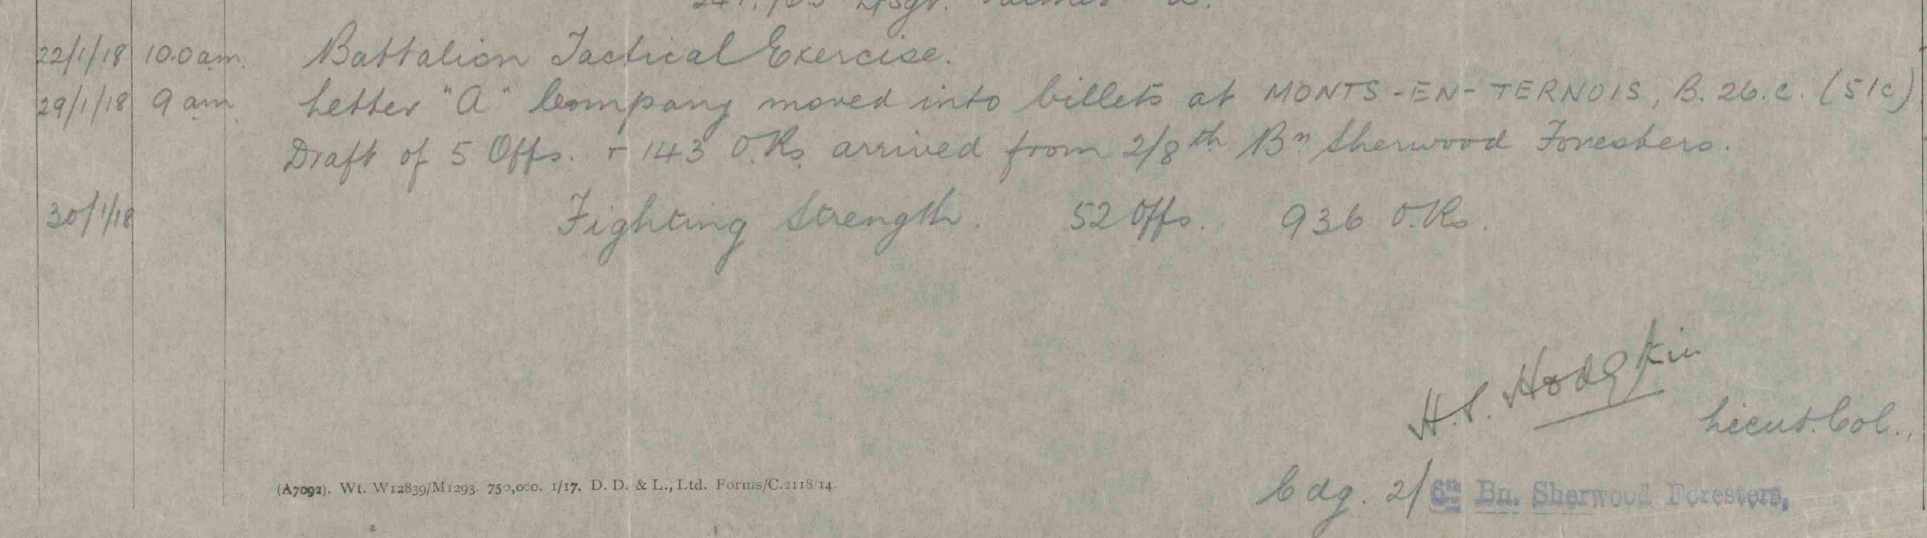 22/1/18 10.0 am. Battalion Tactical Exercise.
29/1/18 9 am. Letter "A" Company moved into billets at MONTS-EN-TERNOIS, B.26.c. (51c)
Draft of 5 Offs. + 143 O.Rs. arrived from 2/8th Bn Sherwood Foresters.
30/1/18 Fighting Strength. 52 Offs. 936 O.Rs.
H.S. Hodgkin
Lieut. Col.,
(A7092). Wt. W12839/M1293. 750,000. 1/17. D. D. & L., Ltd. Forms/C.2118/14.
Cdg. 2/6th Bn. Sherwood Foresters.